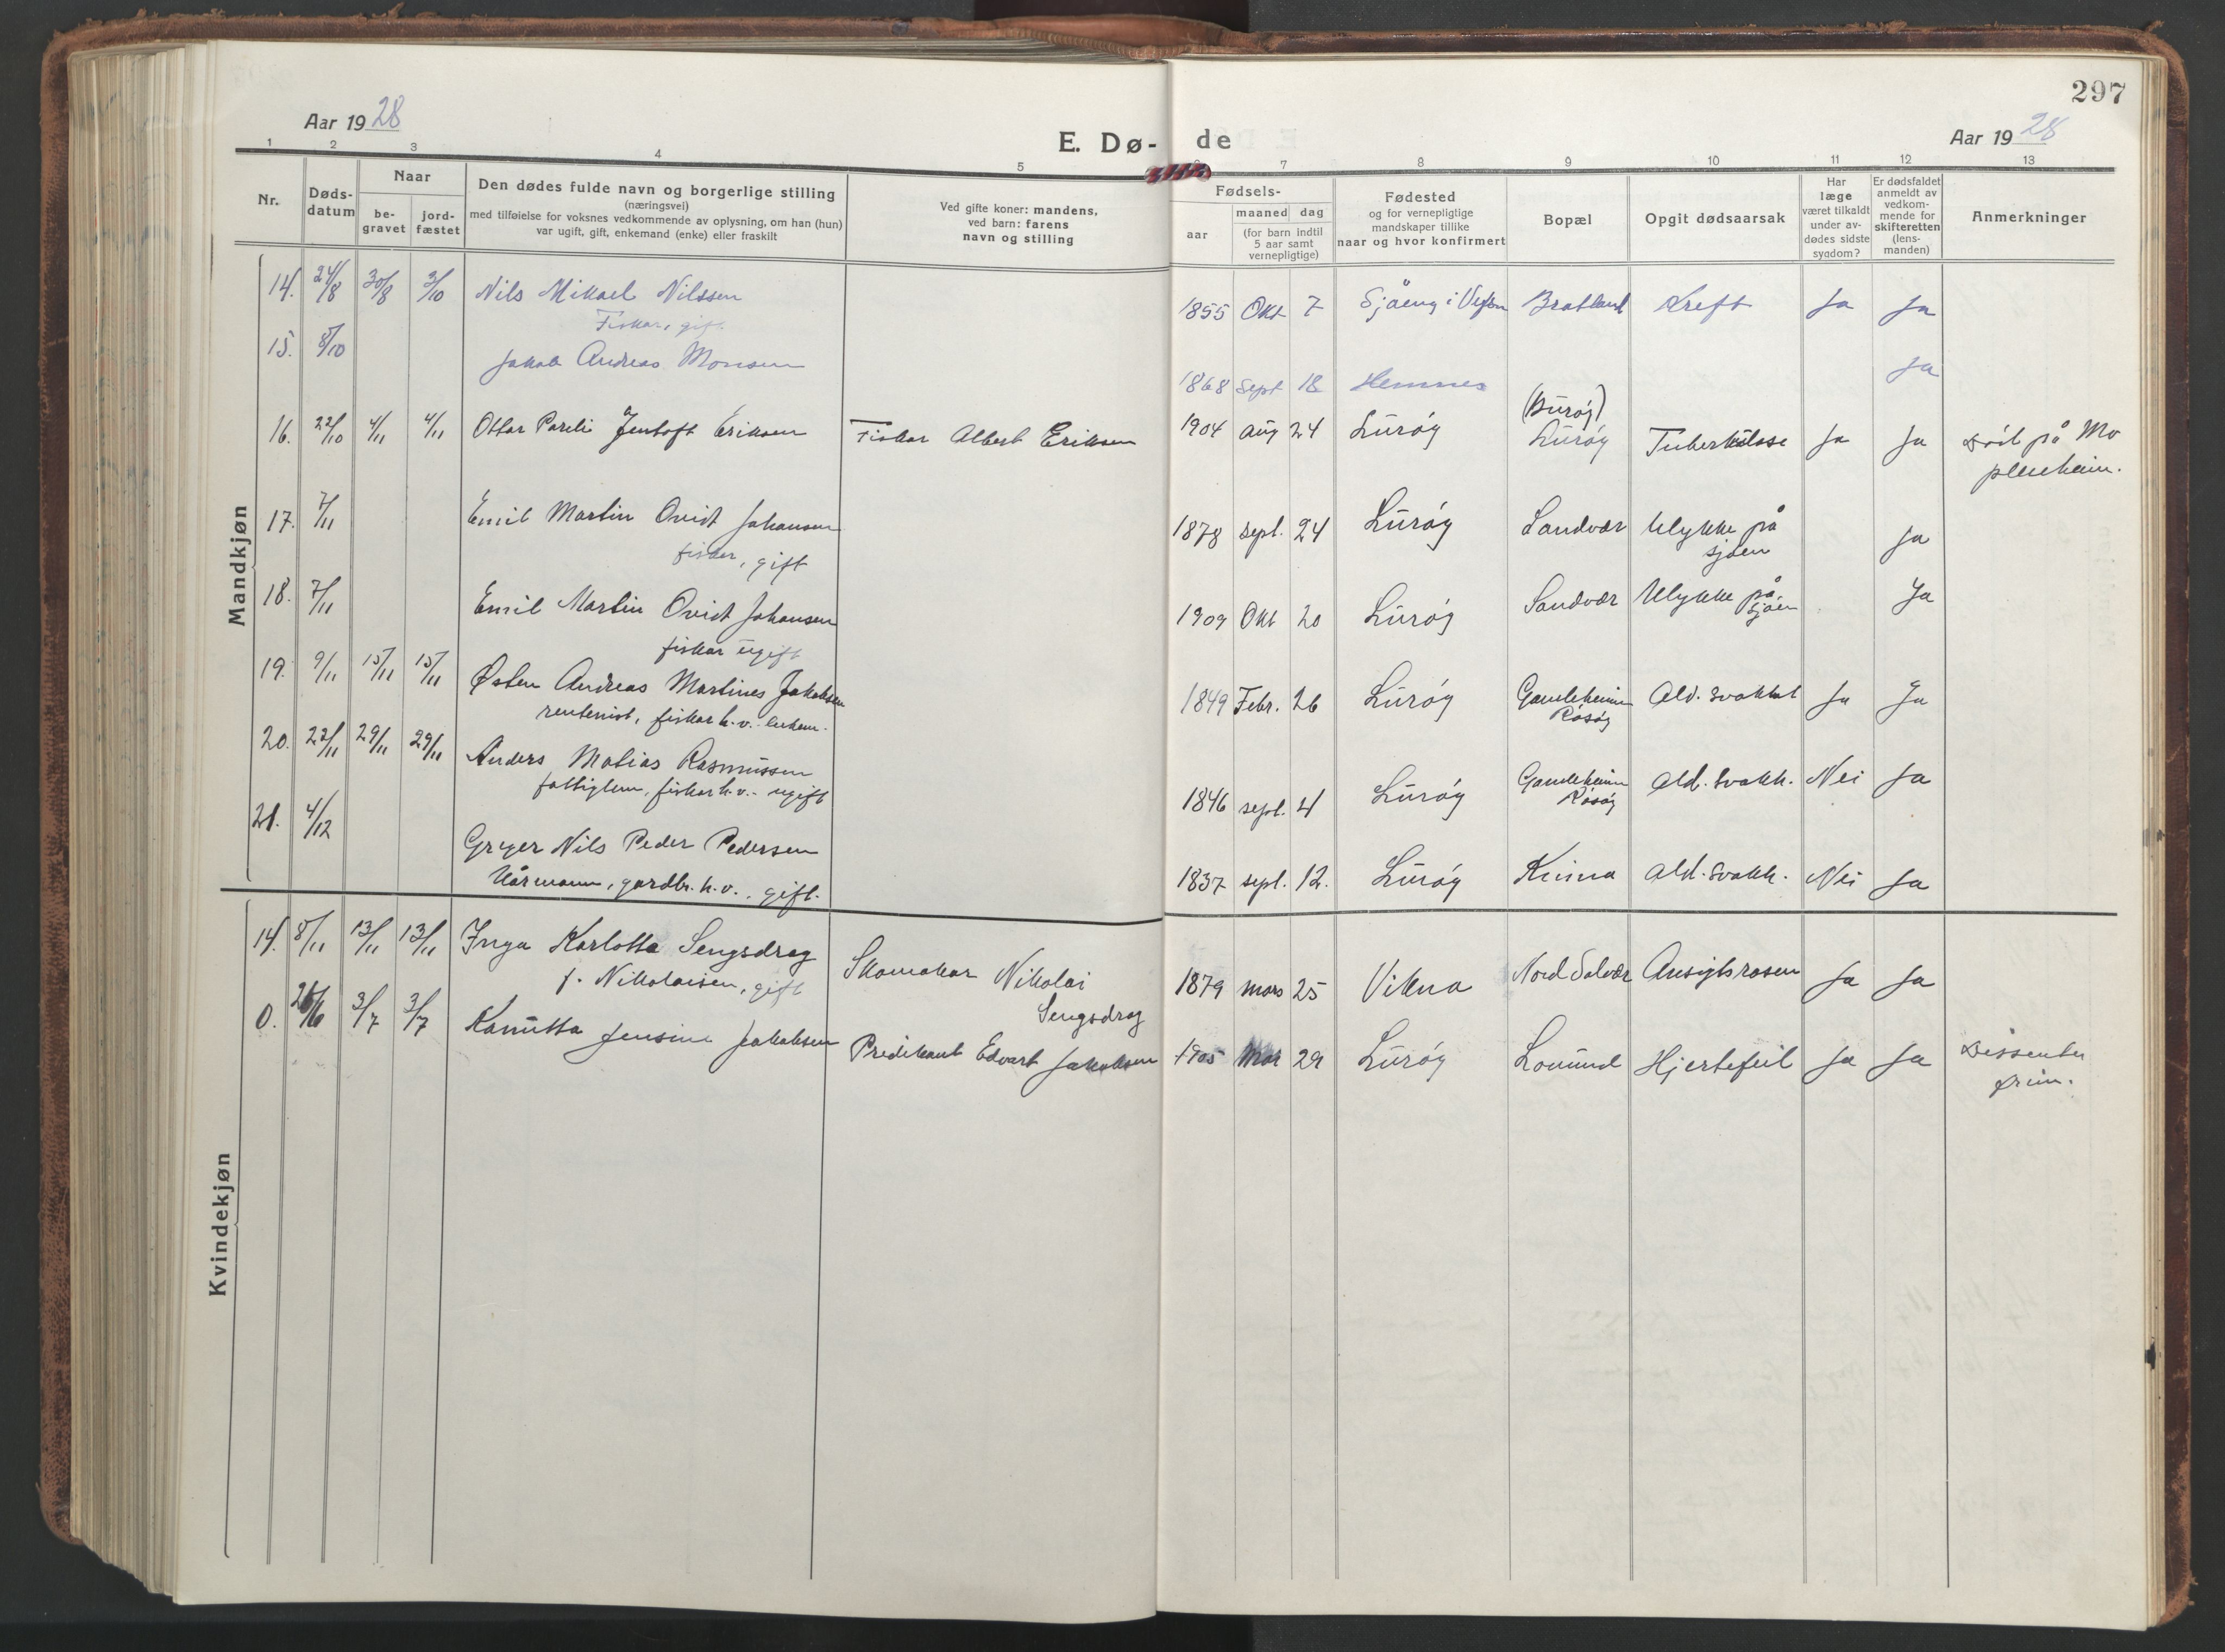 297
Aar 1928
E. Dø- de
Aar 1928
1 2 3 4 5 6 7 8 9 10 11 12 13
Nr.
Døds-
datum
Naar
be-
gravet
jord-
fæstet
Den dødes fulde navn og borgerlige stilling
(næringsvei)
med tilføielse for voksnes vedkommende av oplysning, om han (hun)
var ugift, gift, enkemand (enke) eller fraskilt
Ved gifte koner: mandens,
ved barn: farens
navn og stilling
Fødsels-
aar
maaned dag
(for barn indtil
5 aar samt
vernepligtige)
Fødested
og for vernepligtige
mandskaper tillike
naar og hvor konfirmert
Bopæl
Opgit dødsaarsak
Har
læge
været tilkaldt
under av-
dødes sidste
sygdom?
Er dødsfaldet
anmeldt av
vedkom-
mende for
skifteretten
(lens-
manden)
Anmerkninger
Mandkjøn
14. 24/8 30/8 3/10 Nils Mikael Nilssen 1855 Okt 7 Sjåeng i Vefsn Bratland Kreft Ja Ja
Fiskar, gift
15. 8/10 Jakob Andreas Monsen 1868 Sept 18 Hemnes Ja
(Burøy)
16. 22/10 4/11 4/11 Ottar Pareli Jentoft Eriksen Fiskar Albert Eriksen 1904 Aug 24 Lurøy Lurøy Tuberkulose Ja Ja Død på Mo
pleieheim.
17. 7/11 Emil Martin Ovidt Johansen 1878 sept. 24 Lurøy Sandvær Ulykke på
sjøen Ja
fisker, gift
18. 7/11 Emil Martin Ovidt Johansen 1909 Okt 20 Lurøy Sandvær Ulykke på
sjøen Ja
fiskar ugift
19. 9/11 15/11 15/11 Østen Andreas Martines Jakobsen 1849 Febr. 26 Lurøy Gamleheimen
Råsøy Ald. svakhet Ja Ja
rentenist, fiskar h.v. - enkem.
20. 22/11 29/11 29/11 Anders Matias Rasmussen 1846 sept. 4 Lurøy Gamleheimen
Råsøy Ald. svakh. Nei Ja
fattiglem, fiskar h.v. - ugift
21. 4/12 Gryer Nils Peder Pedersen 1837 sept. 12. Lurøy Kvina Ald. svakh. Nei Ja
Kårmann, gardbr. h.v. , gift.
Kvindekjøn
14. 8/11 13/11 13/11 Inga Karlotta Sengsdrag Skomakar Nikolai
Sengsdrag 1879 mars 25 Vikna Nord Solvær Ansigtsrosen Ja Ja
f. Nikolaisen, gift
0. 26/6 3/7 3/7 Kanutta Jensine Jakobsen Predikant Edvart Jakobsen 1905 Mar 29 Lurøy Lovund Hjertefeil Ja Ja Dissenter